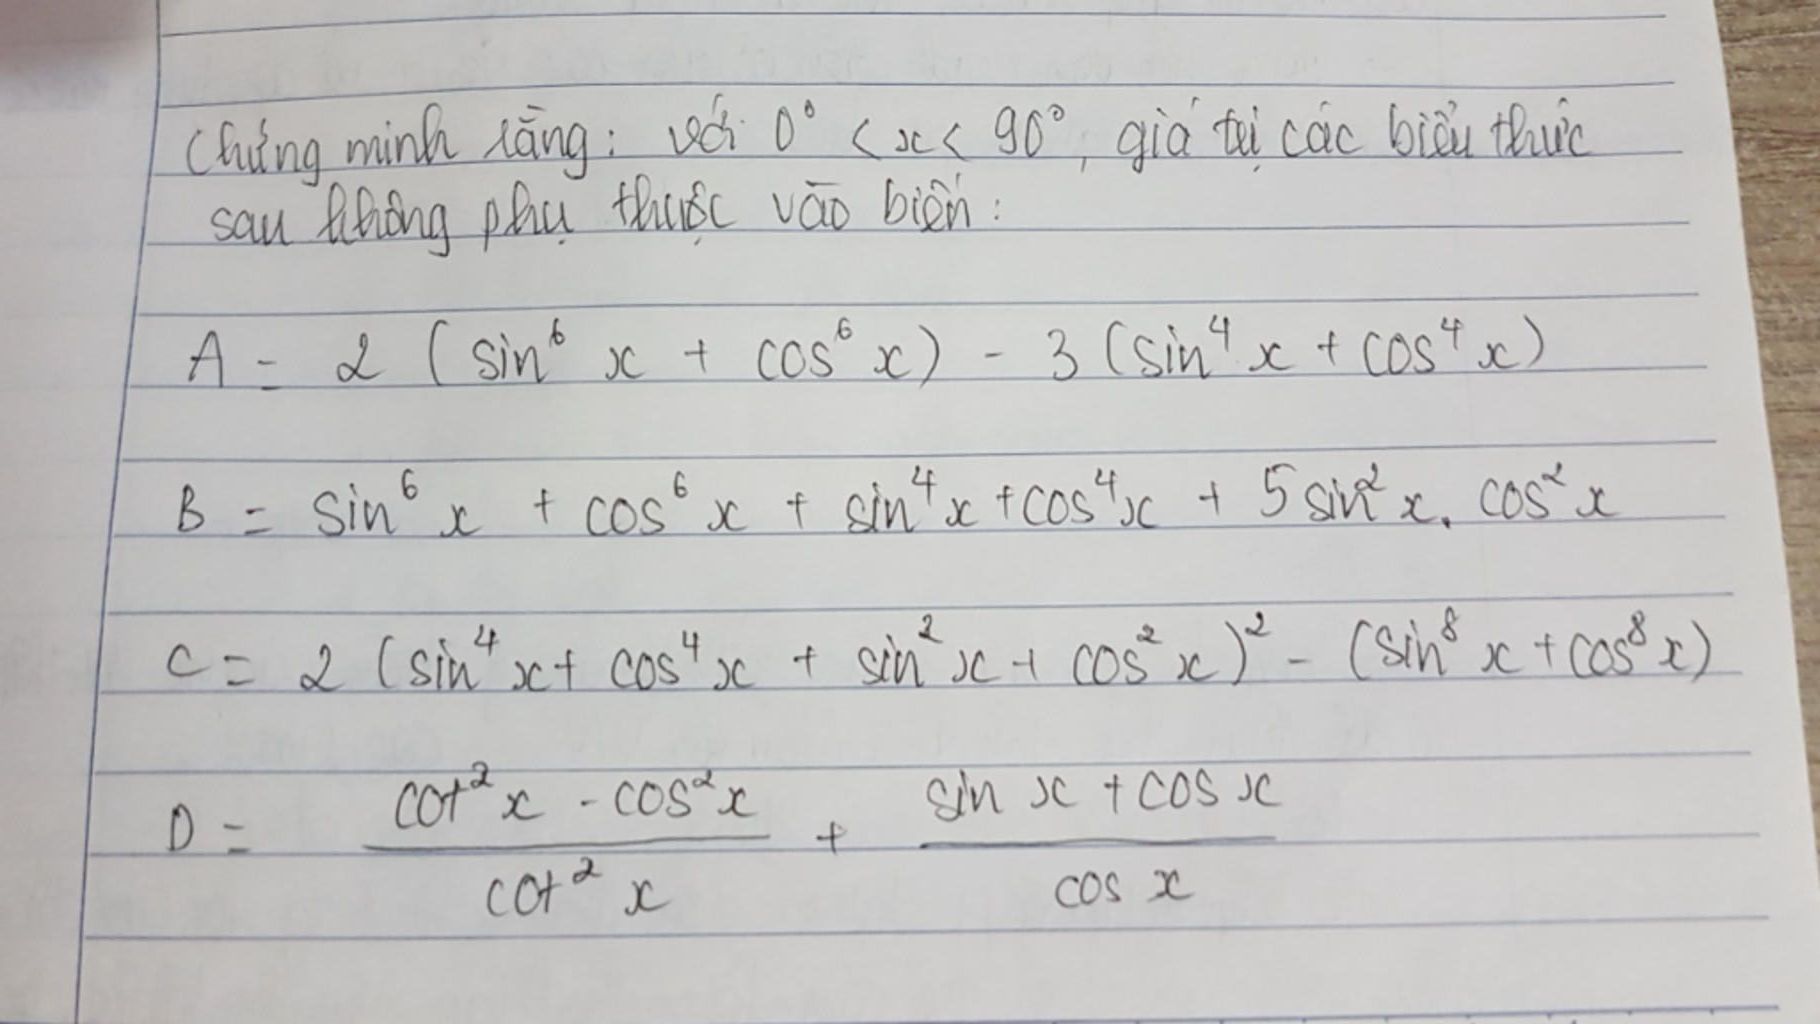 Chứng minh rằng: với 0° < x < 90°, giá trị các biểu thức
sau không phụ thuộc vào biến:
A = 2 (sin⁶ x + cos⁶ x) - 3 (sin⁴ x + cos⁴ x)
B = sin⁶ x + cos⁶ x + sin⁴ x + cos⁴ x + 5 sin² x. cos² x
C = 2 (sin⁴ x + cos⁴ x + sin² x + cos² x)² - (sin⁸ x + cos⁸ x)
D = (cot² x - cos² x)/(cot² x) + (sin x + cos x)/(cos x)